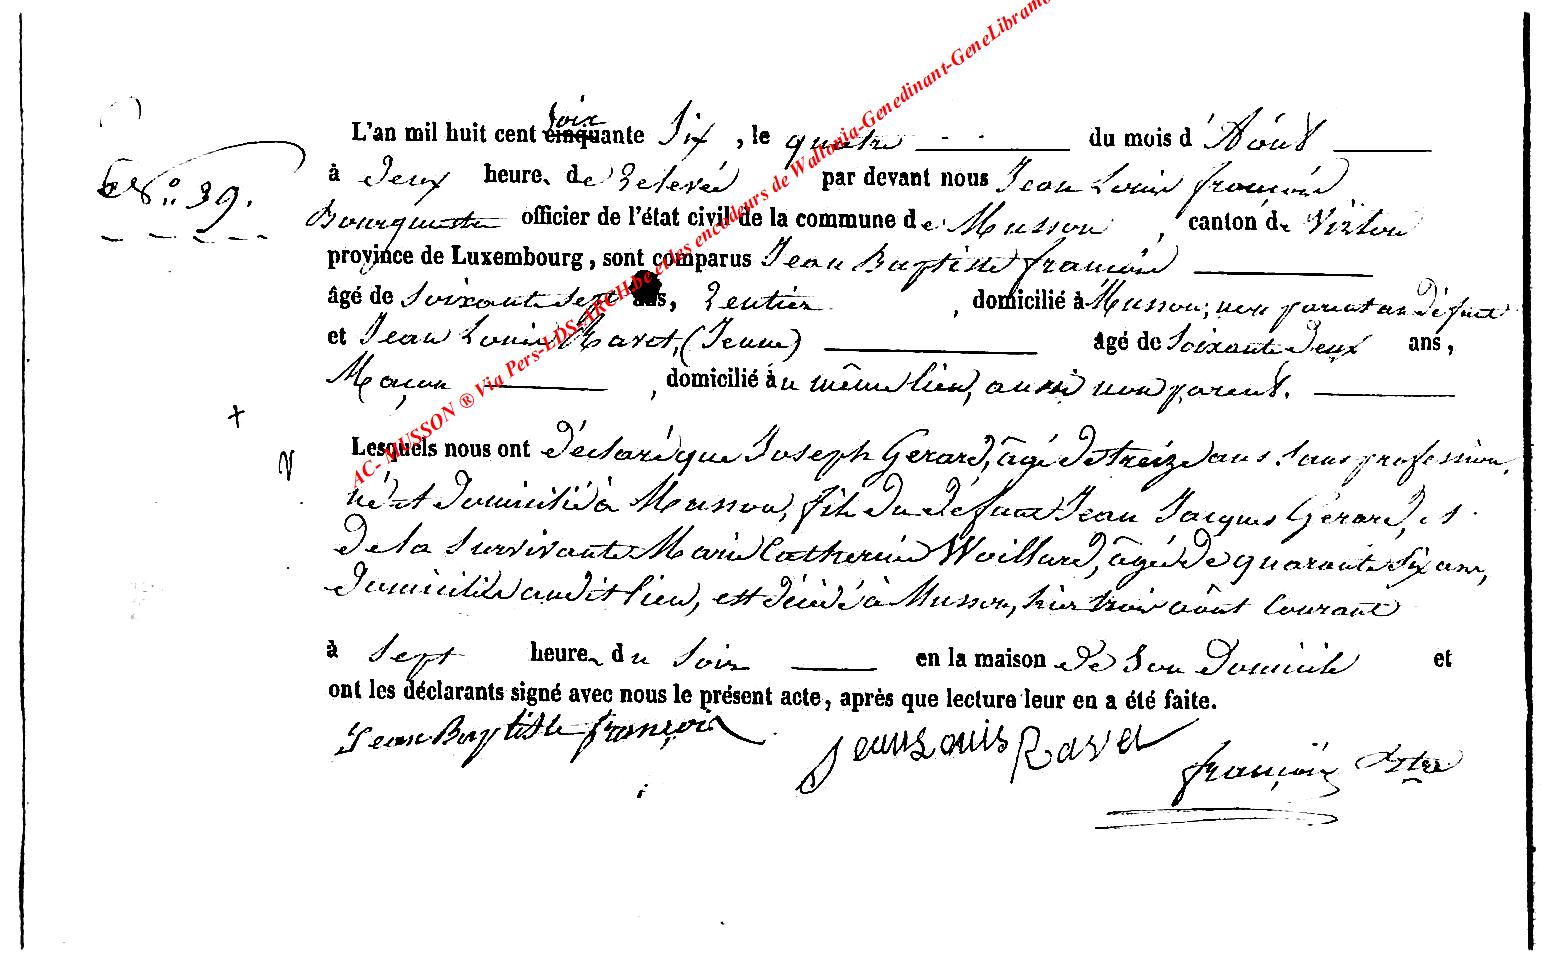 L'an mil huit cent cinquante soix Six, le quatre du mois d'Août
N° 39.
à Deux heures de relevée par devant nous Jean Louis françois
Bourguestre officier de l'état civil de la commune de Musson, canton de Virton
province de Luxembourg, sont comparus Jean Baptiste françois
âgé de Soixante Sept ans, Rentier, domicilié à Musson, non parent au défunt
et Jean Louis Ravet, (Jeune) âgé de Soixante Deux ans,
Maçon, domicilié au même lieu, aussi non parent.
Lesquels nous ont déclaré que Joseph Gerard, âgé de treize ans sans profession,
né et domicilié à Musson, fils du défunt Jean Jacques Gérard, et
de la survivante Marie Catherine Woillard, âgée de quarante six ans,
domiciliée audit lieu, est décédé à Musson, hier trois août courant
à Sept heures du soir en la maison de son domicile et
ont les déclarants signé avec nous le présent acte, après que lecture leur en a été faite.
Jean Baptiste françois Jean Louis Ravet
françois
AC- MUSSON ® Via Pers-LDS-ARCH.be et les encodeurs de Wallonia-Genedinant-GeneLibramo